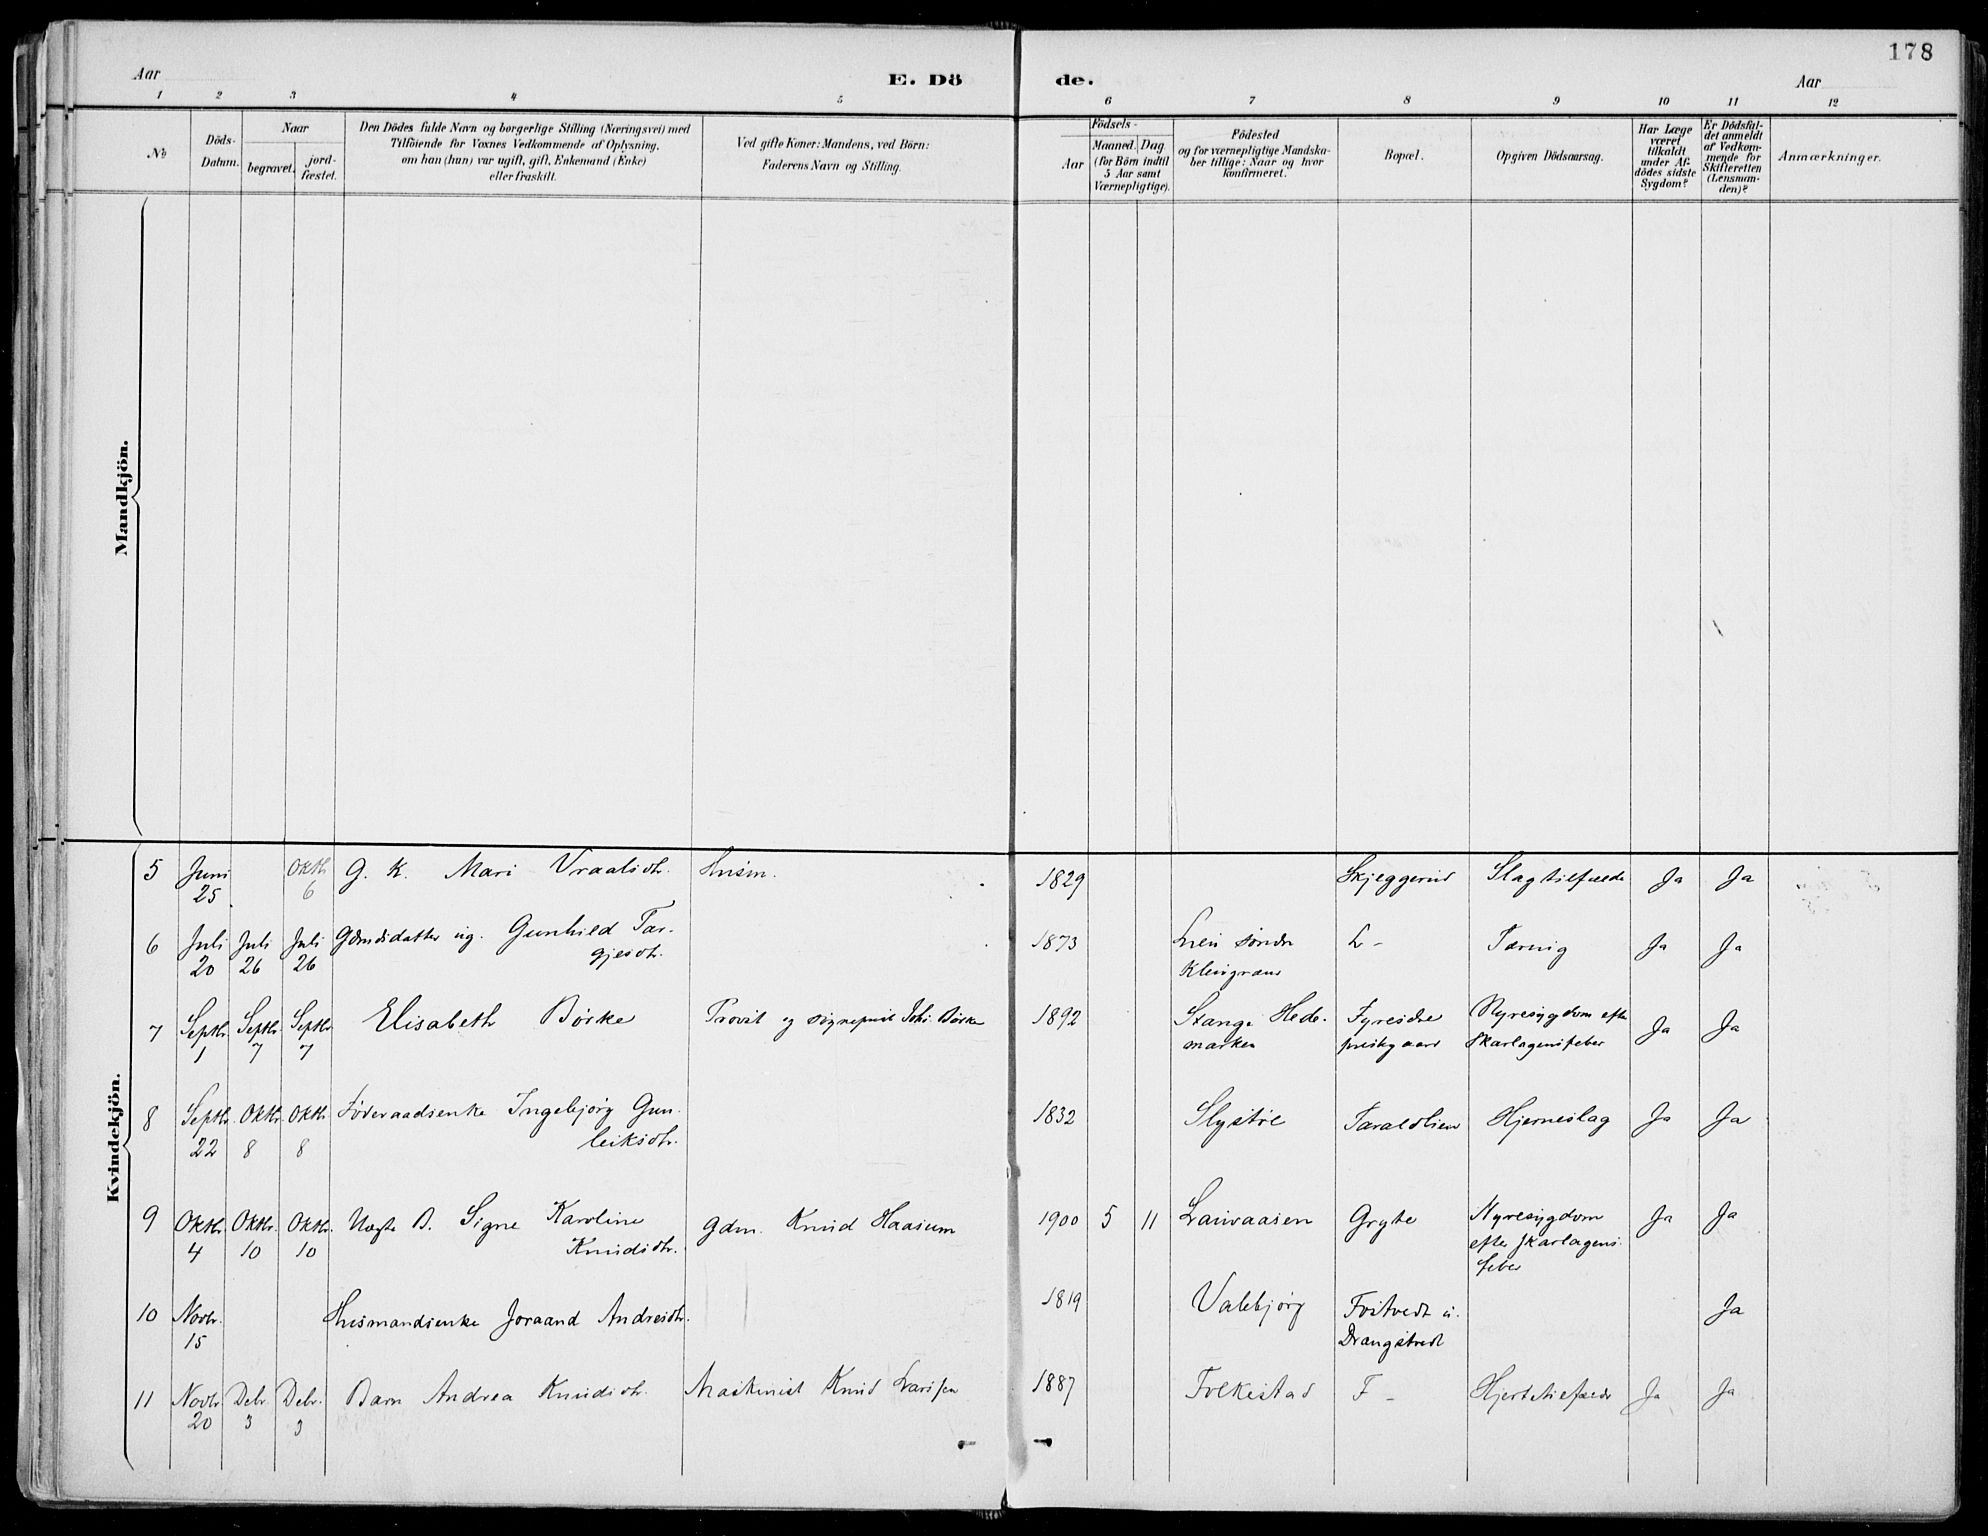 178
Aar
E. Dö
de.
Aar
1 2 3 4 5 6 7 8 9 10 11 12
No
Döds-
Datum.
Naar
begravet.
jord-
fæstet.
Den Dödes fulde Navn og borgerlige Stilling (Næringsvei) med
Tilföiende for Voxnes Vedkommende af Oplysning,
om han (hun) var ugift, gift, Enkemand (Enke)
eller fraskilt.
Ved gifte Koner: Mandens, ved Börn:
Faderens Navn og Stilling.
Födsels-
Aar
Maaned. Dag
(for Börn indtil
5 Aar samt
Værnepligtige).
Födested
og for værnepligtige Mandska-
ber tillige: Naar og hvor
konfirmeret.
Bopæl.
Opgiven Dödsaarsag.
Har Læge
været
tilkaldt
under Af-
dödes sidste
Sygdom?
Er Dödsfal-
det anmeldt
af Vedkom-
mende for
Skifteretten
(Lensman-
den)?
Anmærkninger.
Mandkjön.
Kvindekjön.
5 Juni Oktb G. K. Mari Vraalsdtr. Husm. 1829 Skjeggerud Slagtilfælde Ja Ja
25 6
6 Juli Juli Juli Gdmdsdatter ug. Gunhild Tar- 1873 Lien søndr L- Tæring Ja Ja
20 26 26 gjesdtr. Kleivgrend
7 Septbr. Septbr. Septbr. Elisabeth Børke Provst og sogneprest Johs. Børke 1892 Stange Hede- Fyresdee Nyresygdom efter Ja Ja
1 7 7 marken prestegaard Skarlagensfeber
8 Septbr. Oktbr. Oktbr. Føderaadsenke Ingebjørg Gun- 1832 Slystøl Taraldlien Hjerneslag Ja Ja
22 8 8 leiksdtr.
9 Oktbr. Oktbr. Oktbr. Uægte B. Signe Karoline Gdm. Knud Haasum 1900 5 11 Lauvaasen Gryte Nyresygdom Ja Ja
4 10 10 Knudsdtr. efter skarlagens-
feber
10 Novbr. Husmandsenke Joraand Andresdtr. 1819 Valebjørg Fostvedt u. Ja
15 Drangstvedt
11 Novbr. Debr. Debr. Barn Andrea Knudsdtr. Maskinist Knud Larssen 1887 Folkestad F- Hjertetilfælde Ja Ja
20 3 3